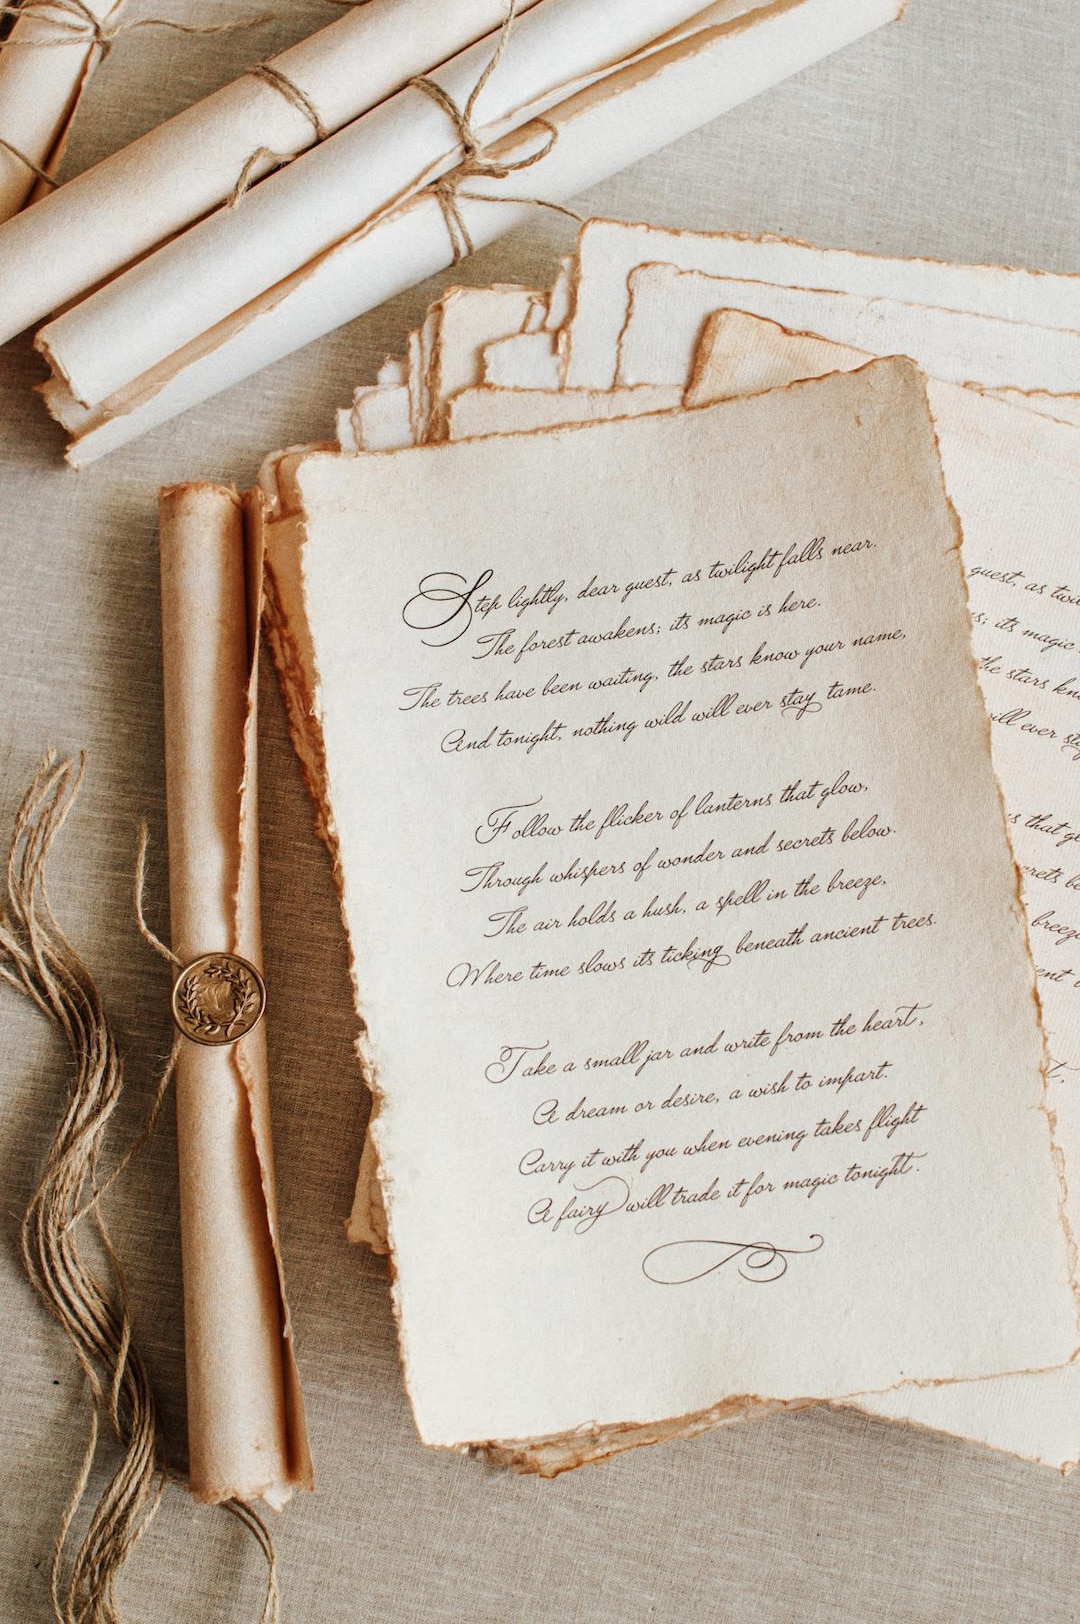 Step lightly, dear guest, as twilight falls near.
The forest awakens; its magic is here.
The trees have been waiting, the stars know your name,
And tonight, nothing wild will ever stay tame.
Follow the flicker of lanterns that glow,
Through whispers of wonder and secrets below.
The air holds a hush, a spell in the breeze,
Where time slows its ticking beneath ancient trees.
Take a small jar and write from the heart,
A dream or desire, a wish to impart.
Carry it with you when evening takes flight
A fairy will trade it for magic tonight.
guest, as
its magic
the stars
will ever
that